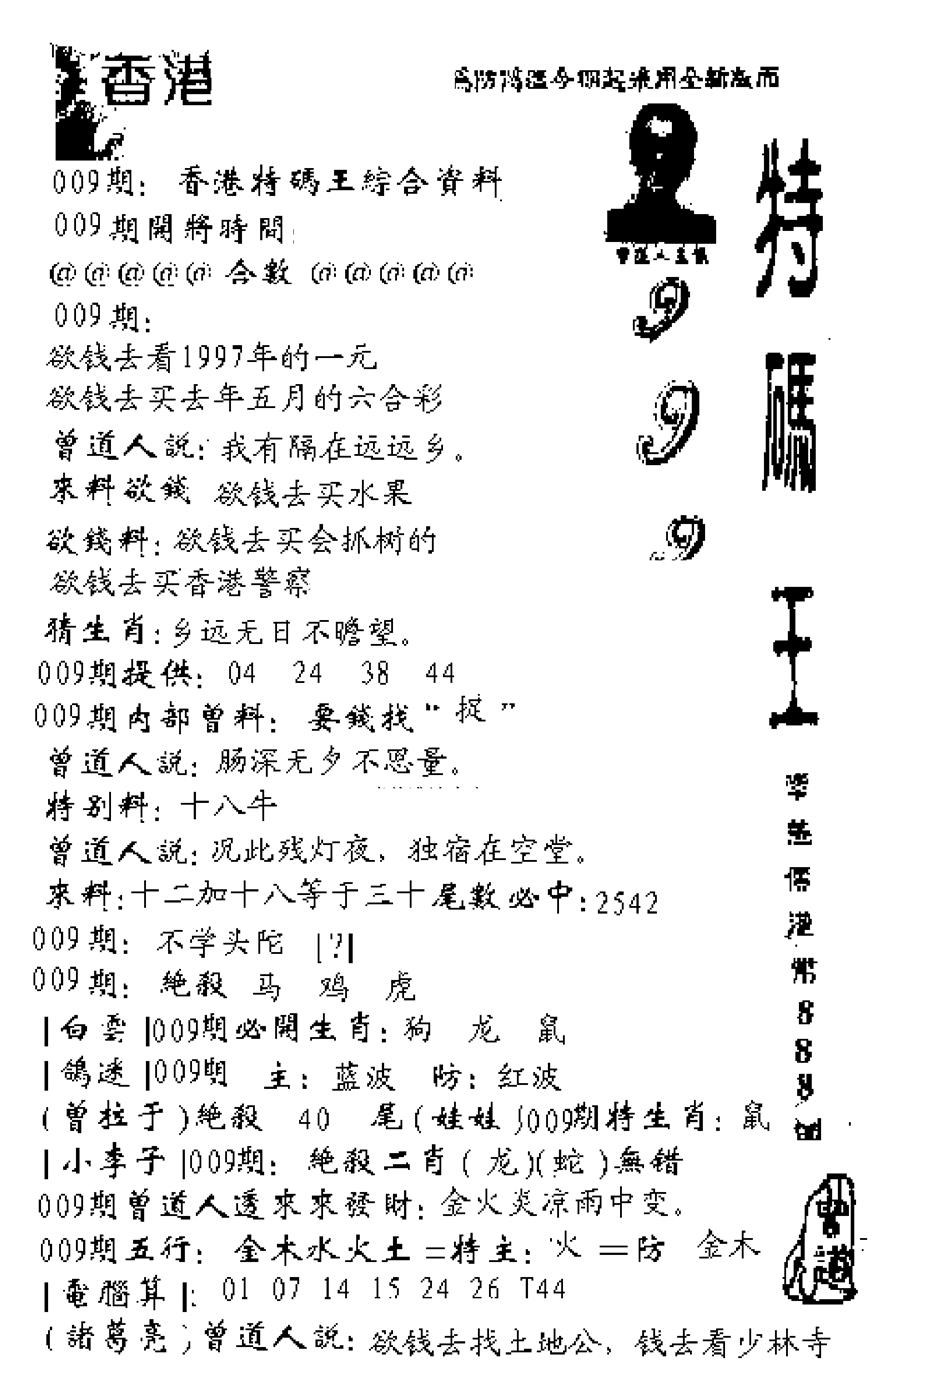 香港
為防偽造今期起采用全新版面
009期：香港特碼王綜合資料
009期開將時間:
@@@@@合數@@@@@
009期：
欲钱去看1997年的一元
欲钱去买去年五月的六合彩
曾道人説：我有隔在远远乡。
來料欲錢 欲钱去买水果
欲錢料：欲钱去买会抓树的
欲钱去买香港警察
猜生肖：乡远无日不瞻望。
009期提供：04 24 38 44
009期内部曾料：要錢找“捉”
曾道人説：肠深无夕不思量。
特别料：十八牛
曾道人説：况此残灯夜，独宿在空堂。
來料：十二加十八等于三十尾數必中：2542
009期：不学头陀 |?|
009期：絶殺 马 鸡 虎
|白雲|009期必開生肖：狗 龙 鼠
|鴿迷|009期 主：蓝波 防：红波
(曾拉于)絶殺 40 尾(娃娃)009期特生肖：鼠
|小李子|009期：絶殺二肖(龙)(蛇)無错
009期曾道人透來來發財：金火炎凉雨中变。
009期五行：金木水火土=特主：火=防 金木
|電腦算|：01 07 14 15 24 26 T44
(諸葛亮)曾道人説：欲钱去找土地公，钱去看少林寺
曾道人主俱
999
特碼王
港幣888
曾道